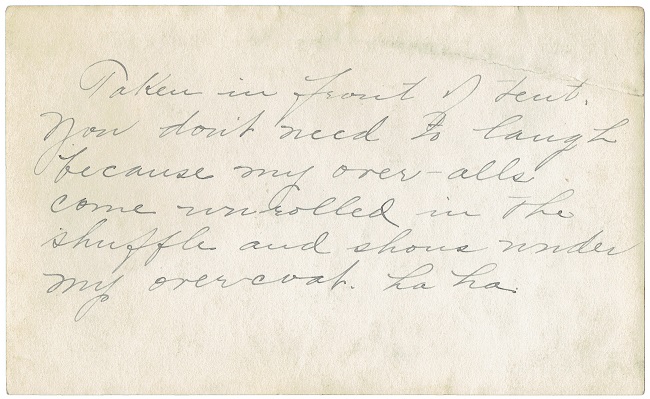 Taken in front of tent.
You don't need to laugh
because my over-alls
come unrolled in the
shuffle and shows under
my overcoat. ha ha.